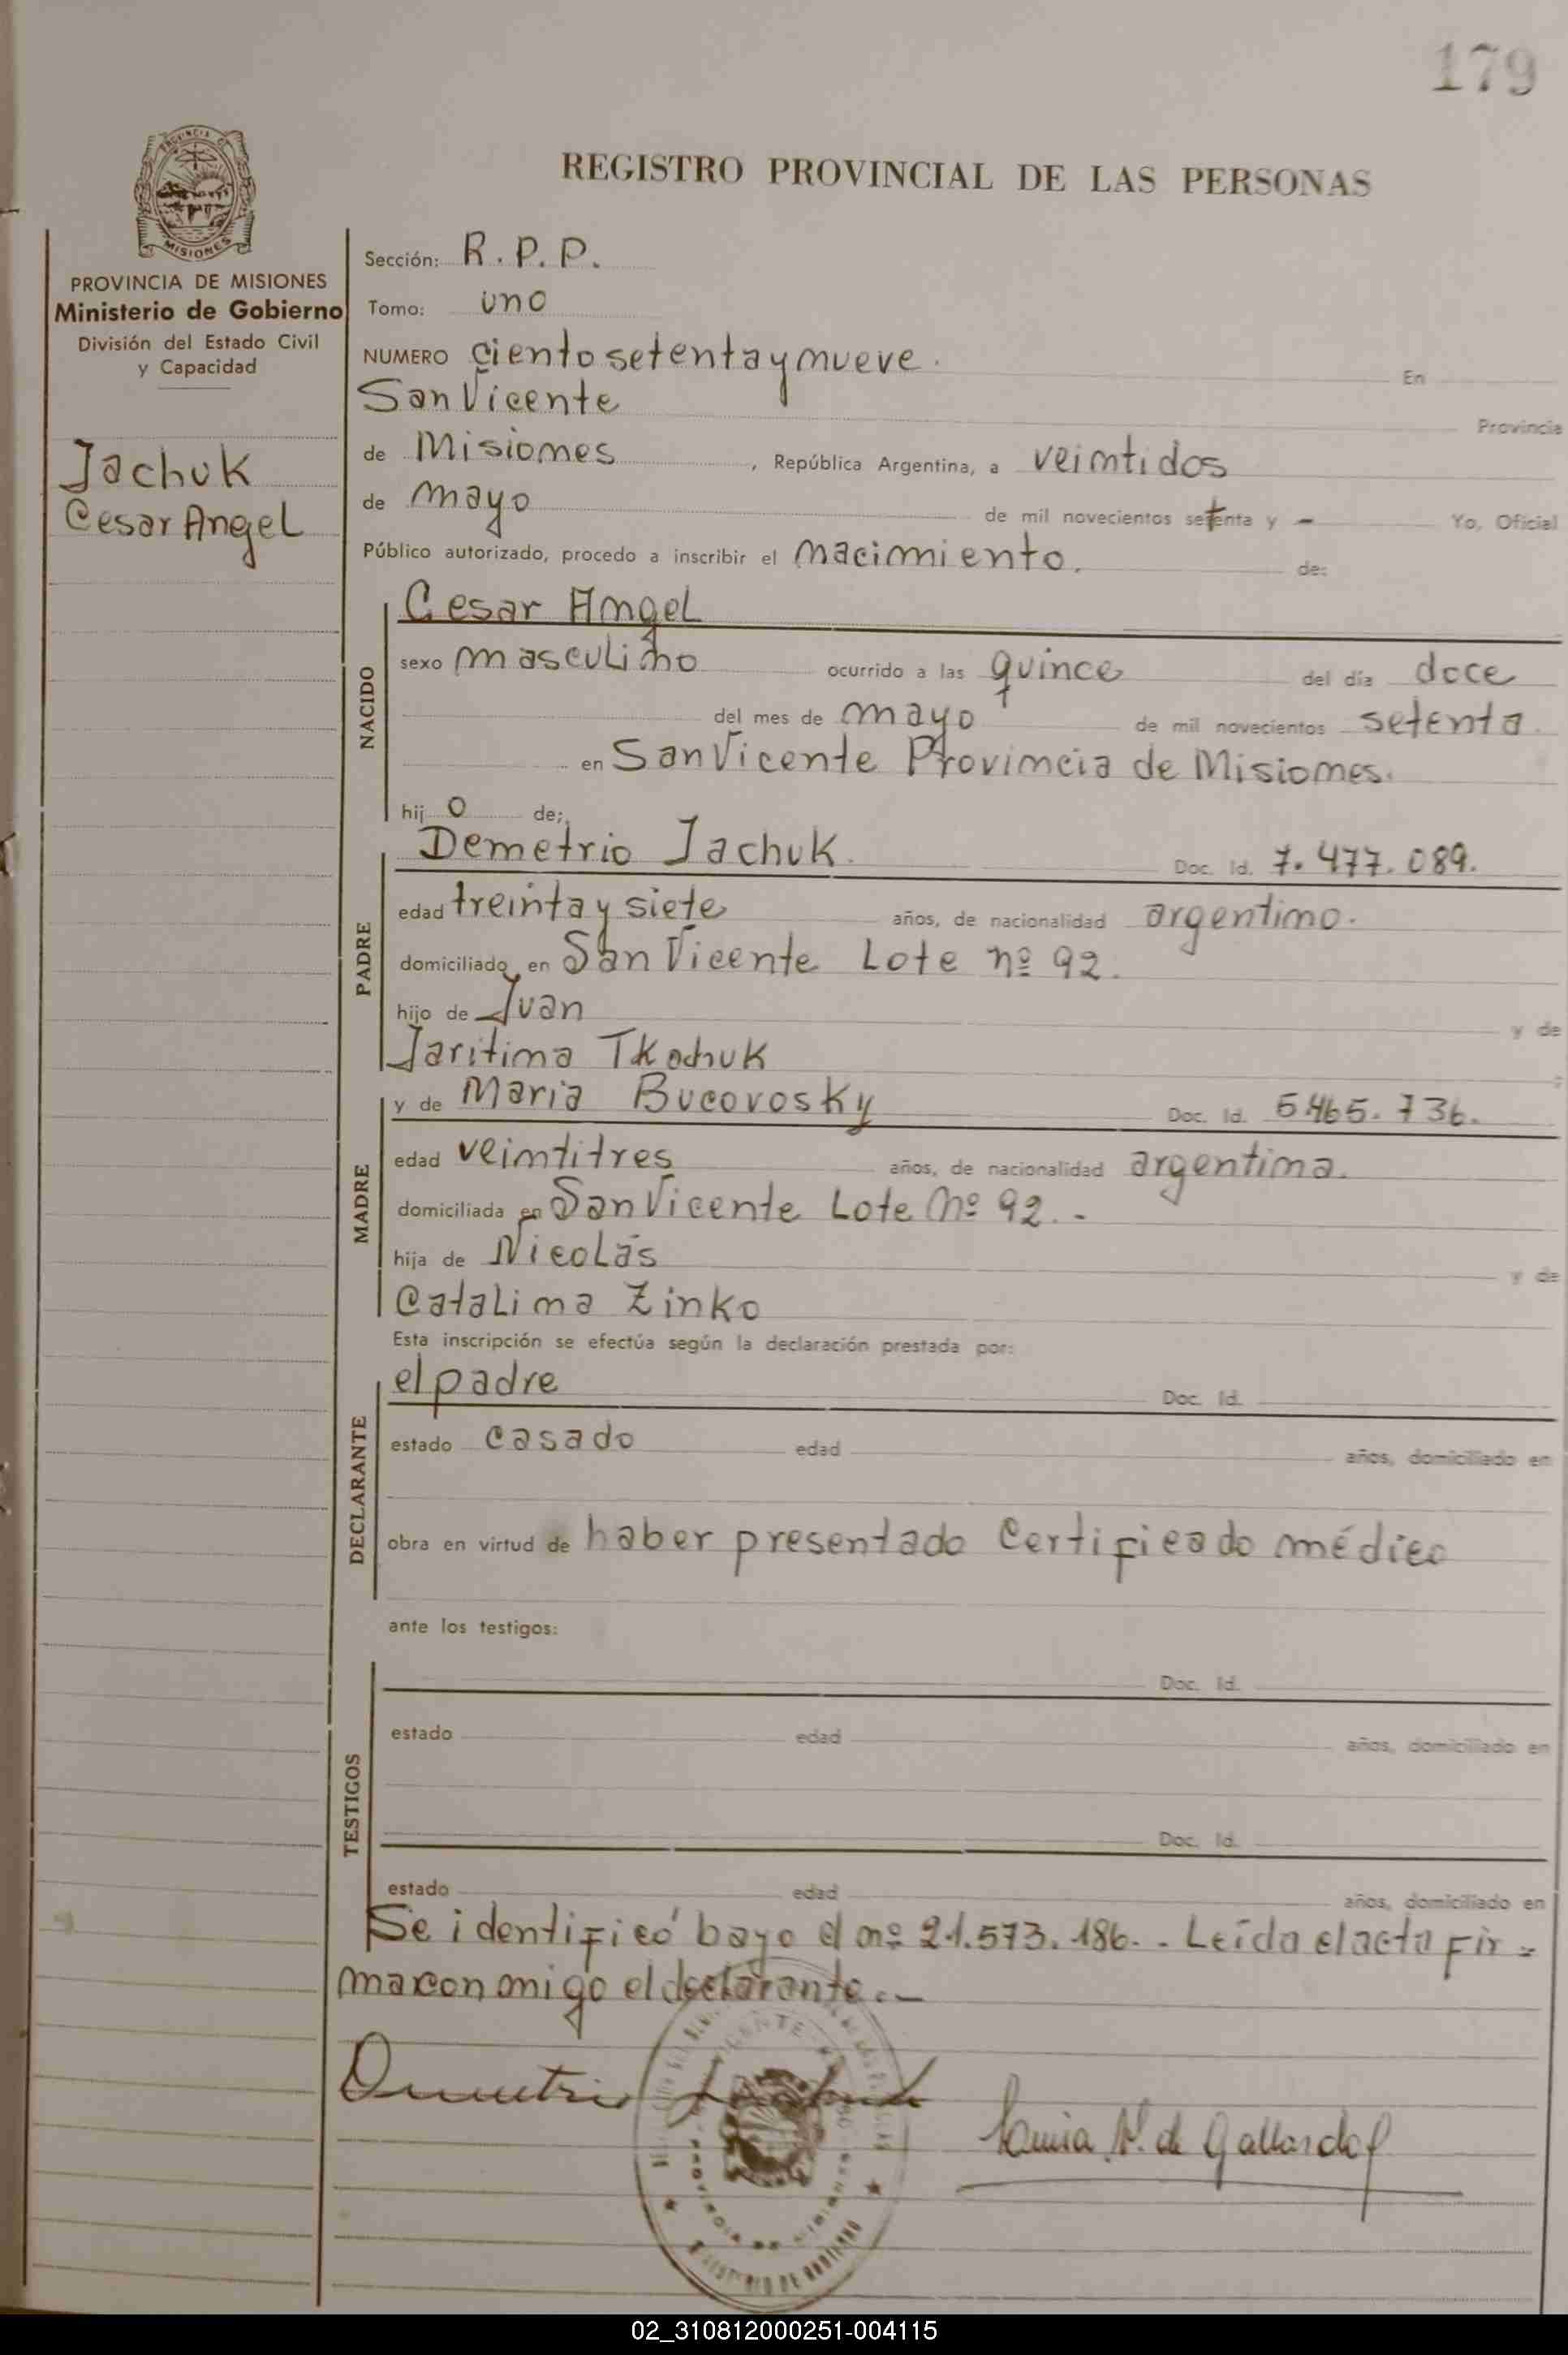 179
REGISTRO PROVINCIAL DE LAS PERSONAS
PROVINCIA DE
MISIONES
PROVINCIA DE MISIONES
Ministerio de Gobierno
División del Estado Civil
y Capacidad
Jachuk
Cesar Angel
Sección: R.P.P.
Tomo: uno
NUMERO ciento setenta y nueve. En
San Vicente Provincia
de Misiones, República Argentina, a veintidos
de mayo de mil novecientos setenta y - Yo, Oficial
Público autorizado, procedo a inscribir el nacimiento. de:
NACIDO
Cesar Angel
sexo masculino ocurrido a las quince del día doce
del mes de mayo de mil novecientos setenta
en San Vicente Provincia de Misiones.
hijo de;
PADRE
Demetrio Jachuk. Doc. Id. 7.477.089.
edad treinta y siete años, de nacionalidad argentino.
domiciliado en San Vicente Lote nº 92.
hijo de Juan y de
Jaritina Tkachuk
MADRE
y de Maria Bucovosky Doc. Id. 5.465.736.
edad veintitres años, de nacionalidad argentina.
domiciliada en San Vicente Lote Nº 92. -
hija de Nicolás y de
Catalina Zinko
Esta inscripción se efectúa según la declaración prestada por:
DECLARANTE
el padre Doc. Id.
estado casado edad años, domiciliado en
obra en virtud de haber presentado Certificado médico
ante los testigos:
TESTIGOS
Doc. Id.
estado edad años, domiciliado en
Doc. Id.
estado edad años, domiciliado en
Se identificó bayo el nº 21.573.186. . Leída el acta fir-
ma con migo el declarante. -
Demetrio Jachuk
de Gallardo
PROVINCIA DE MISIONES
MINISTERIO DE GOBIERNO
02_310812000251-004115